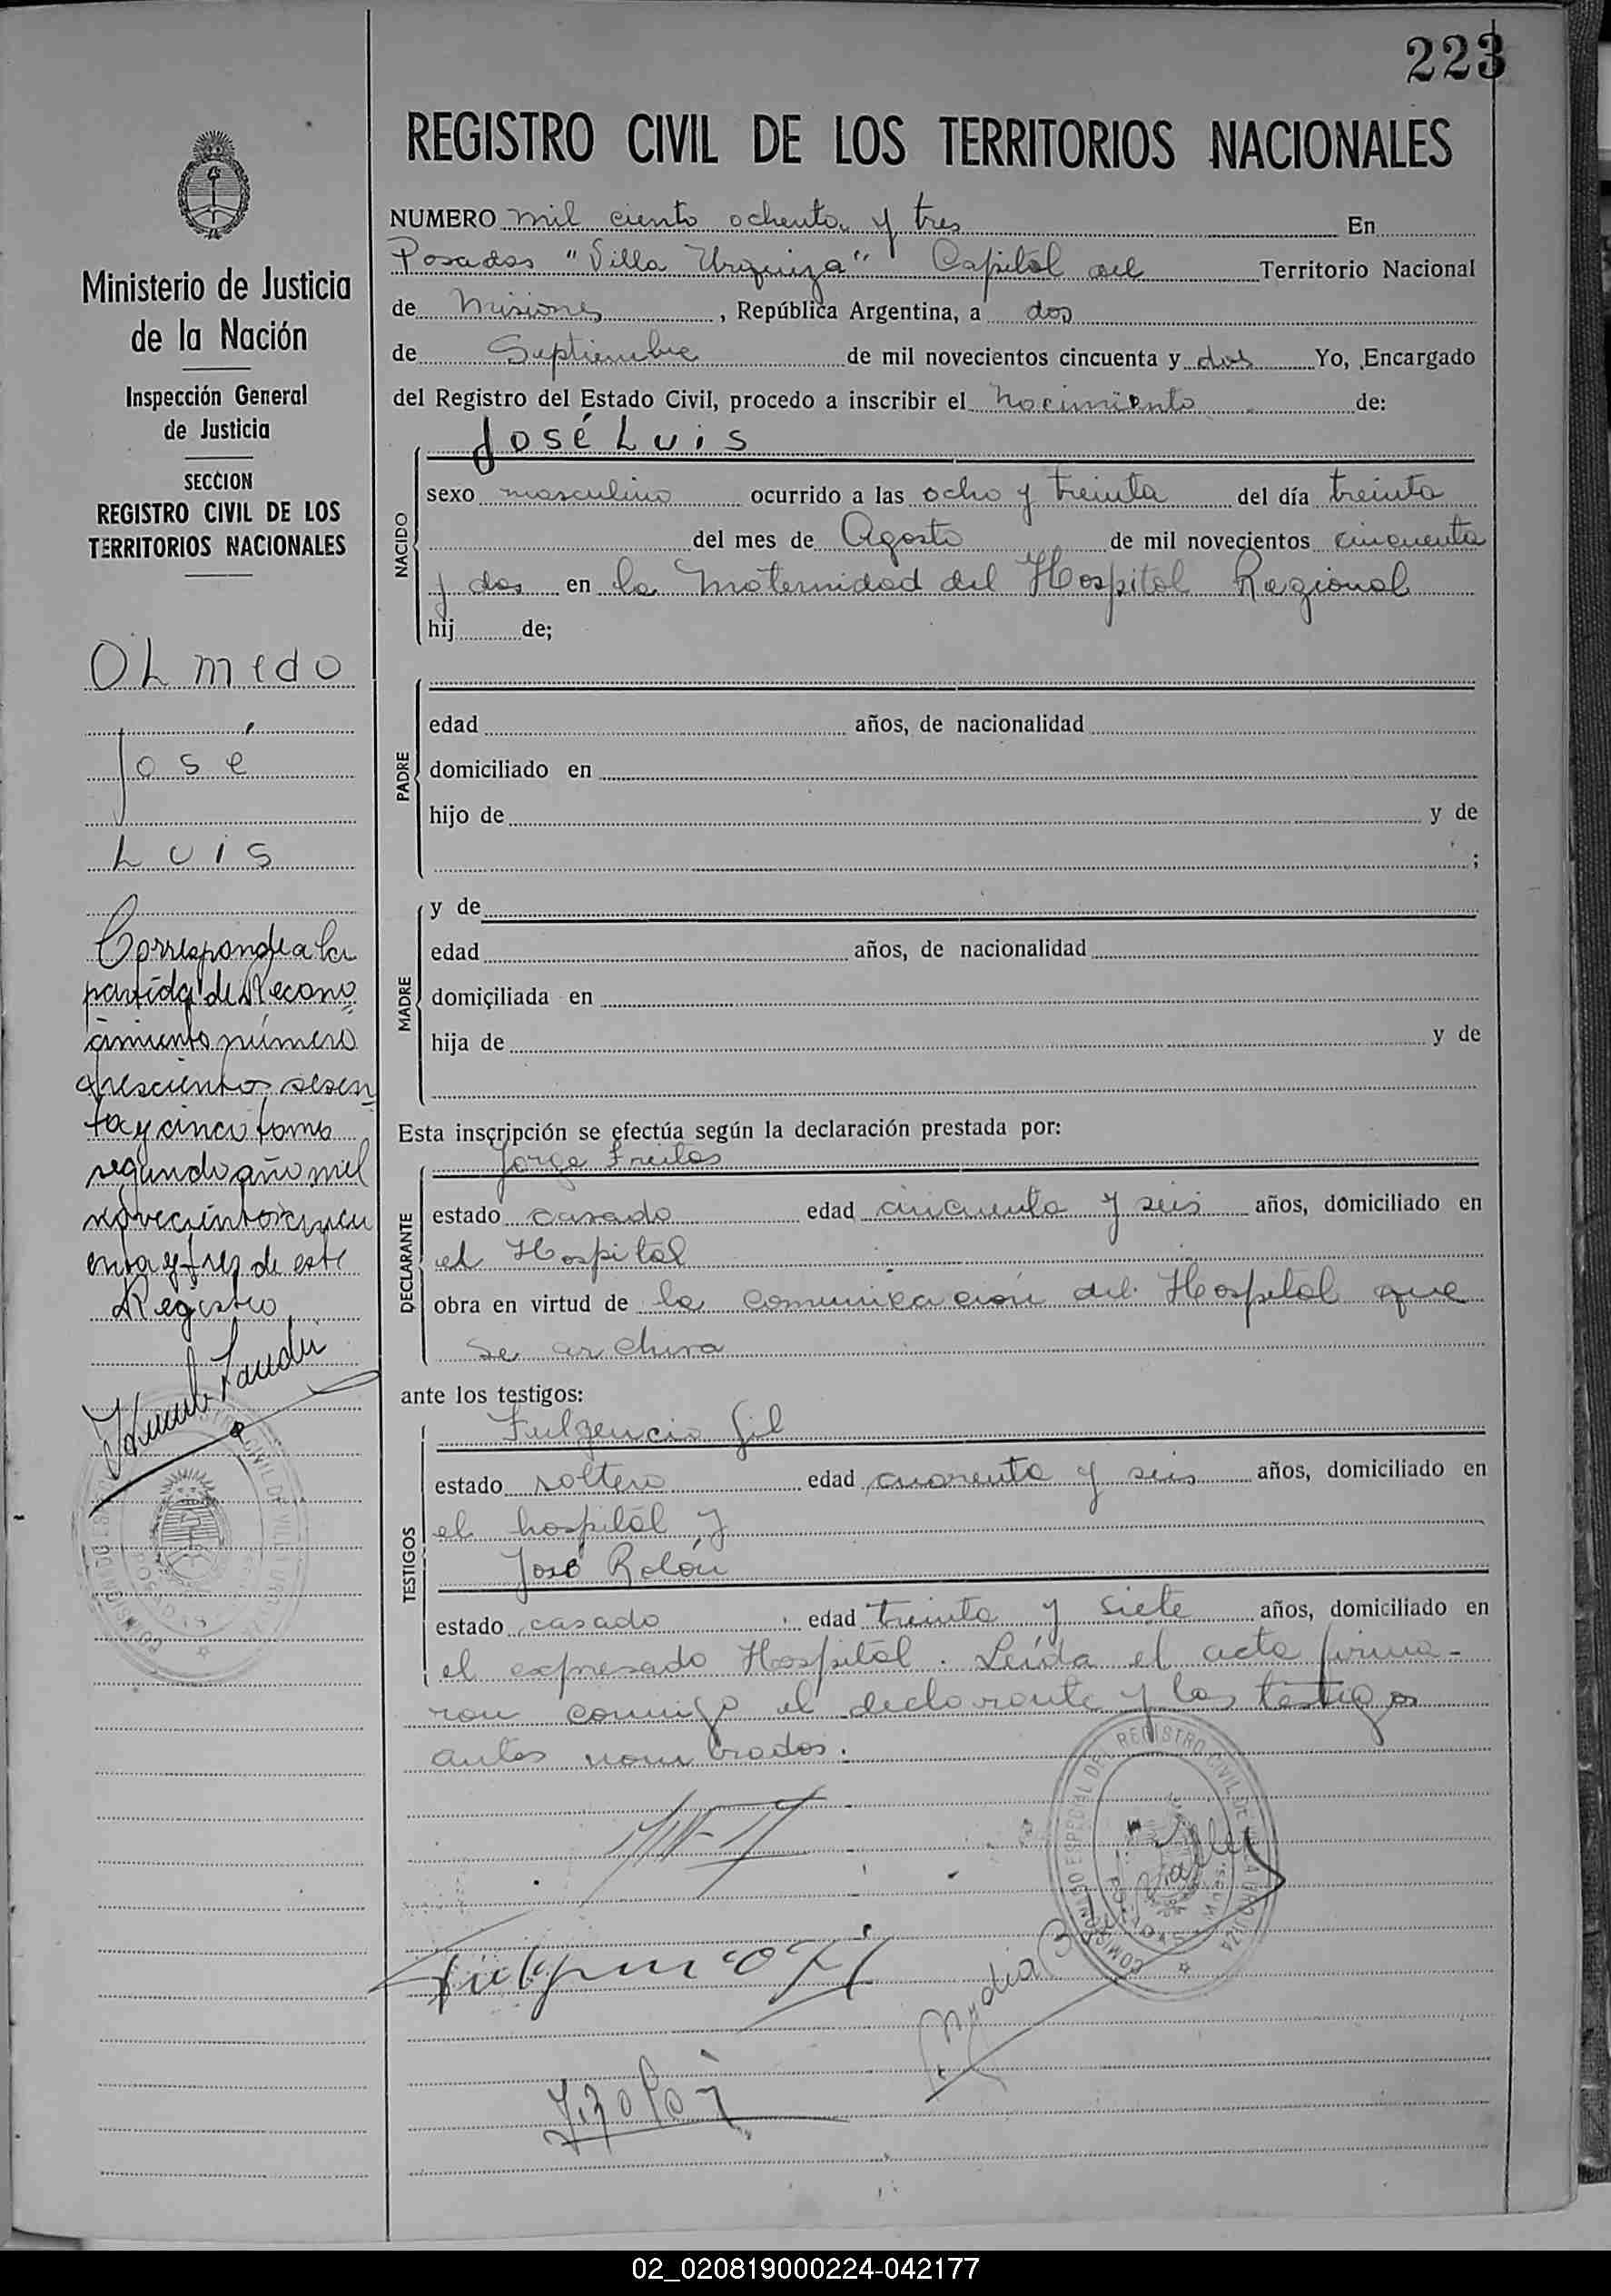 223
REGISTRO CIVIL DE LOS TERRITORIOS NACIONALES
Ministerio de Justicia
de la Nación
Inspección General
de Justicia
SECCION
REGISTRO CIVIL DE LOS
TERRITORIOS NACIONALES
OLmedo
José
Luis
Corresponde a la
partida de Recono
cimiento número
trescientos sesen
ta y cinco tomo
segundo año mil
novecientos cincu
enta y tres de este
Registro
NUMERO mil ciento ochenta y tres En
Posadas "Villa Urquiza" Capital del Territorio Nacional
de Misiones, República Argentina, a dos
de Septiembre de mil novecientos cincuenta y dos Yo, Encargado
del Registro del Estado Civil, procedo a inscribir el nacimiento de:
José Luis
NACIDO
sexo masculino ocurrido a las ocho y treinta del día treinta
del mes de Agosto de mil novecientos cincuenta
y dos en la Maternidad del Hospital Regional
hij de;
PADRE
edad años, de nacionalidad
domiciliado en
hijo de y de
;
MADRE
y de
edad años, de nacionalidad
domiciliada en
hija de y de
Esta inscripción se efectúa según la declaración prestada por:
Jorge Freitas
DECLARANTE
estado casado edad cincuenta y seis años, domiciliado en
el Hospital
obra en virtud de la comunicación del Hospital que
se archiva
ante los testigos:
Fulgencio Gil
TESTIGOS
estado soltero edad cuarenta y seis años, domiciliado en
el hospital y
José Rolón
estado casado edad treinta y siete años, domiciliado en
el expresado Hospital. Leída el acta firma-
ron conmigo el declarante y los testigos
antes nombrados.
02_020819000224-042177